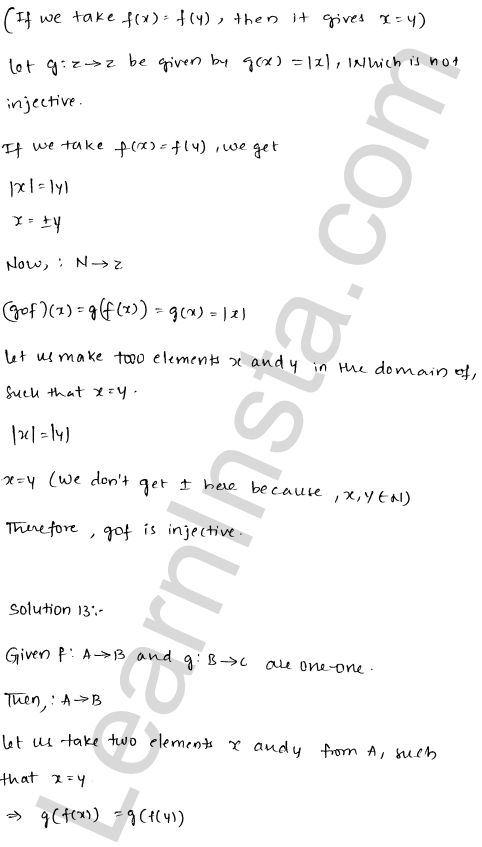 (If we take f(x) = f(y), then it gives x = y)
Let g: z→z be given by g(x) = |x|, Which is not
injective.
If we take f(x) = f(y), we get
|x| = |y|
x = ±y
Now, : N→z
(gof)(x) = g(f(x)) = g(x) = |x|
Let us make two elements x and y in the domain of,
such that x = y.
|x| = |y|
x = y (We don't get ± here because, x, y ∈ N)
Therefore, gof is injective.
Solution 13:-
Given f: A→B and g: B→C are one-one.
Then,: A→B
Let us take two elements x and y from A, such
that x = y
⇒ g(f(x)) = g(f(y))
LearnInsta.com